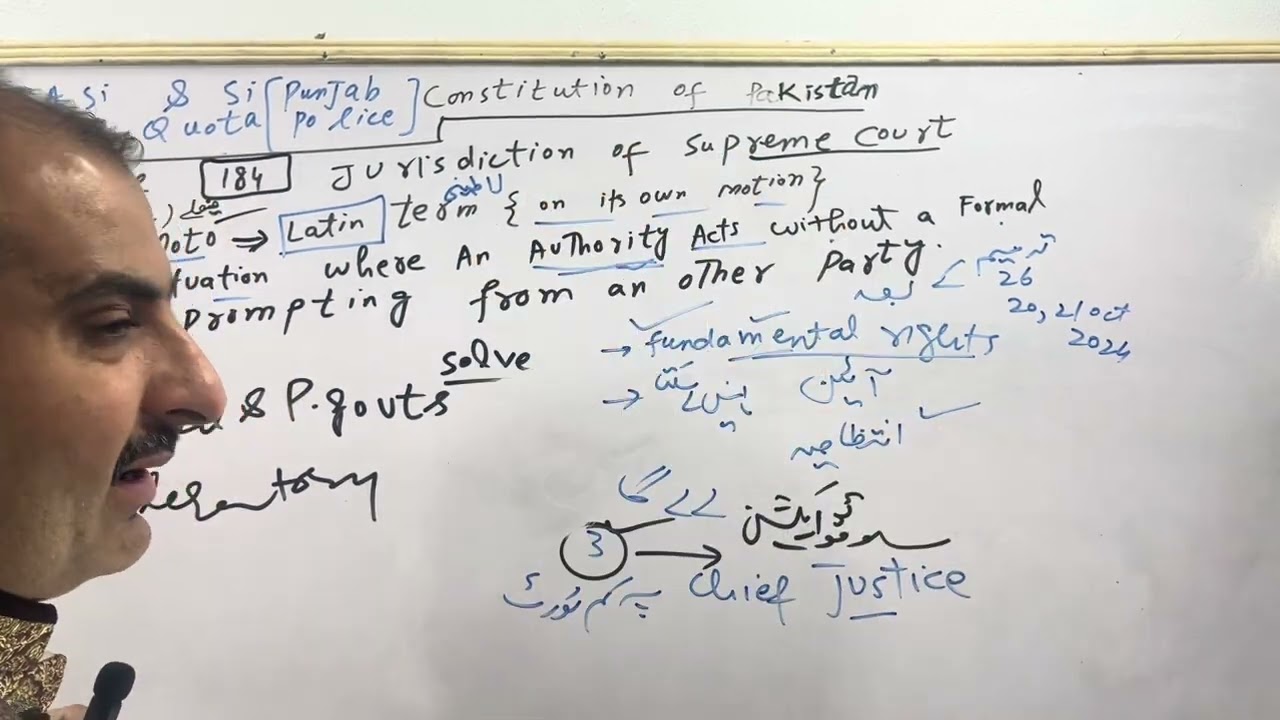 Si & Si [Punjab Police] Constitution of Pakistan
Quota
184 Jurisdiction of Supreme Court
moto ⇒ Latin term { on its own motion }
tuation where An Authority Acts without a Formal
prompting from an other Party.
ترمیم
26 کے بعد
20, 21 oct
2024
solve
→ fundamental rights
& P. govts
→ آئین
انتظامیہ
لے گا
سوموٹو ایکشن
3 → Chief Justice
سپریم کورٹ